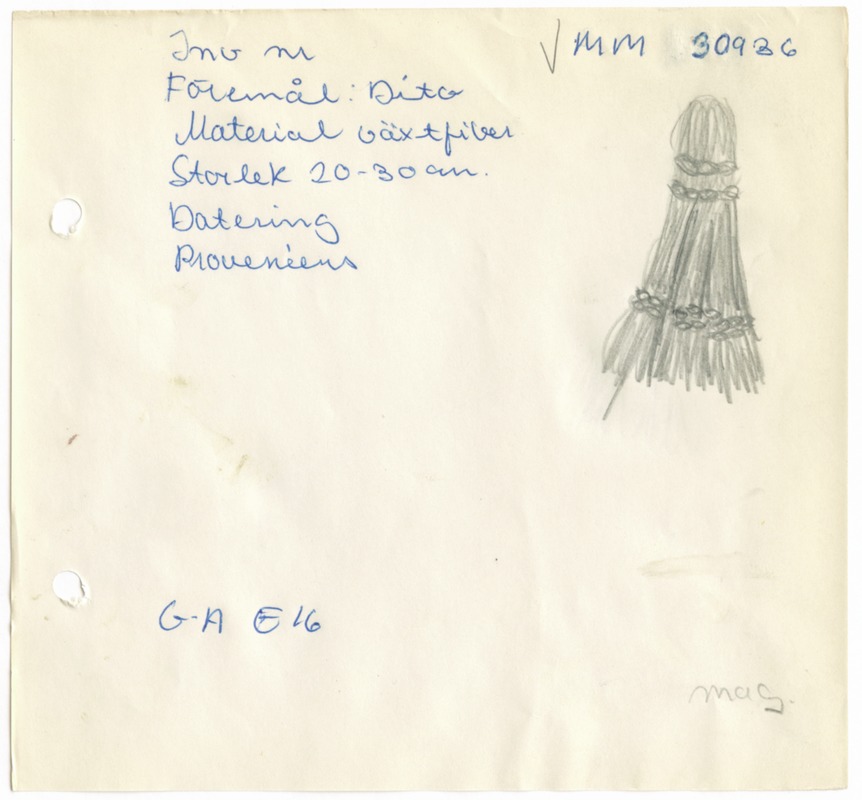 Inv nr
√ MM 30936
Föremål: Dito
Material växtfiber
Storlek 20-30 cm.
Datering
Proveniens
G-A E16
mag.